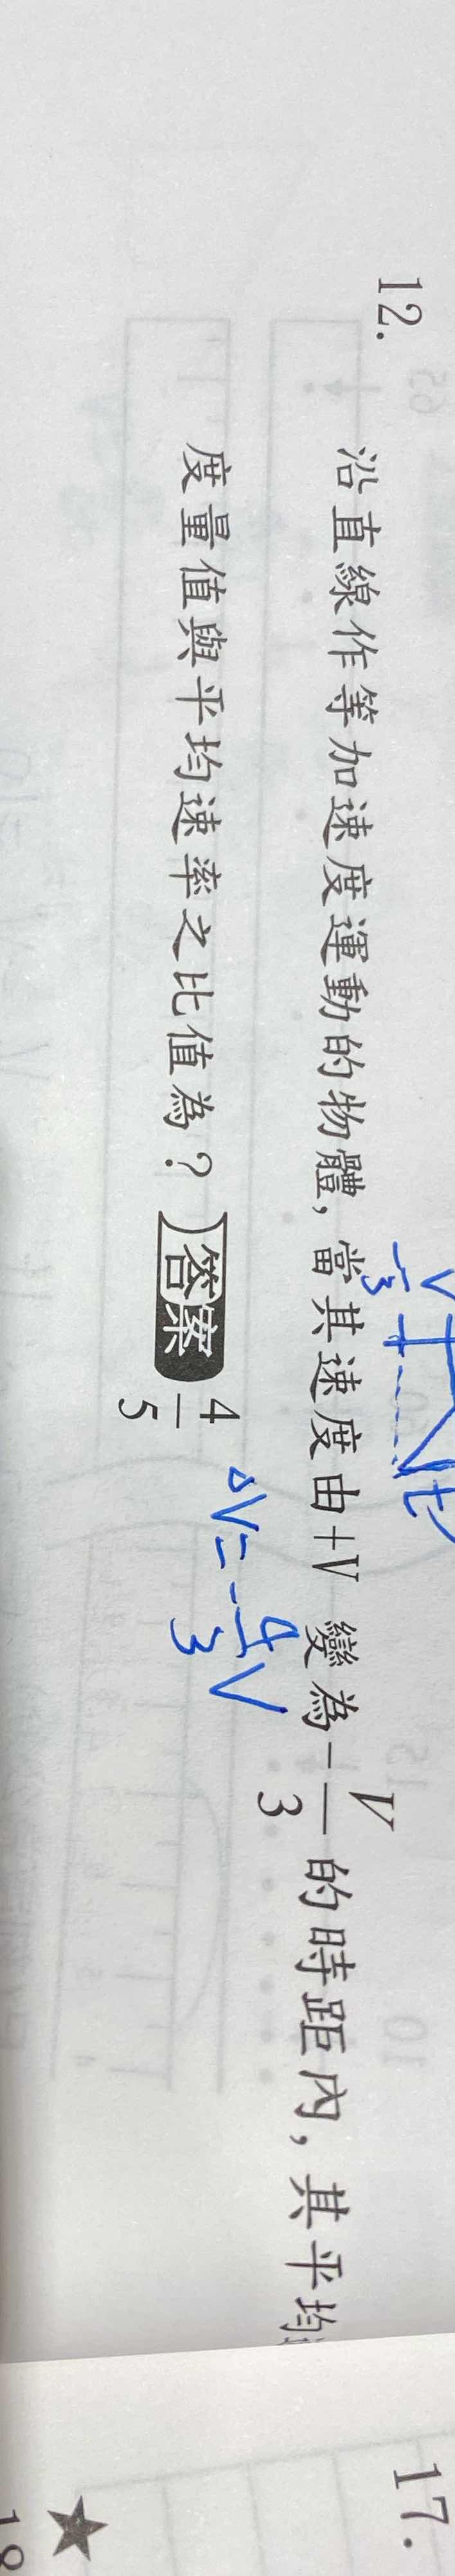 12. 沿直線作等加速度運動的物體，當其速度由+V 變為-V/3 的時距內，其平均
度量值與平均速率之比值為？ 答案 4/5
V
-V/3
t
ΔV=-4/3V
17.
★
18